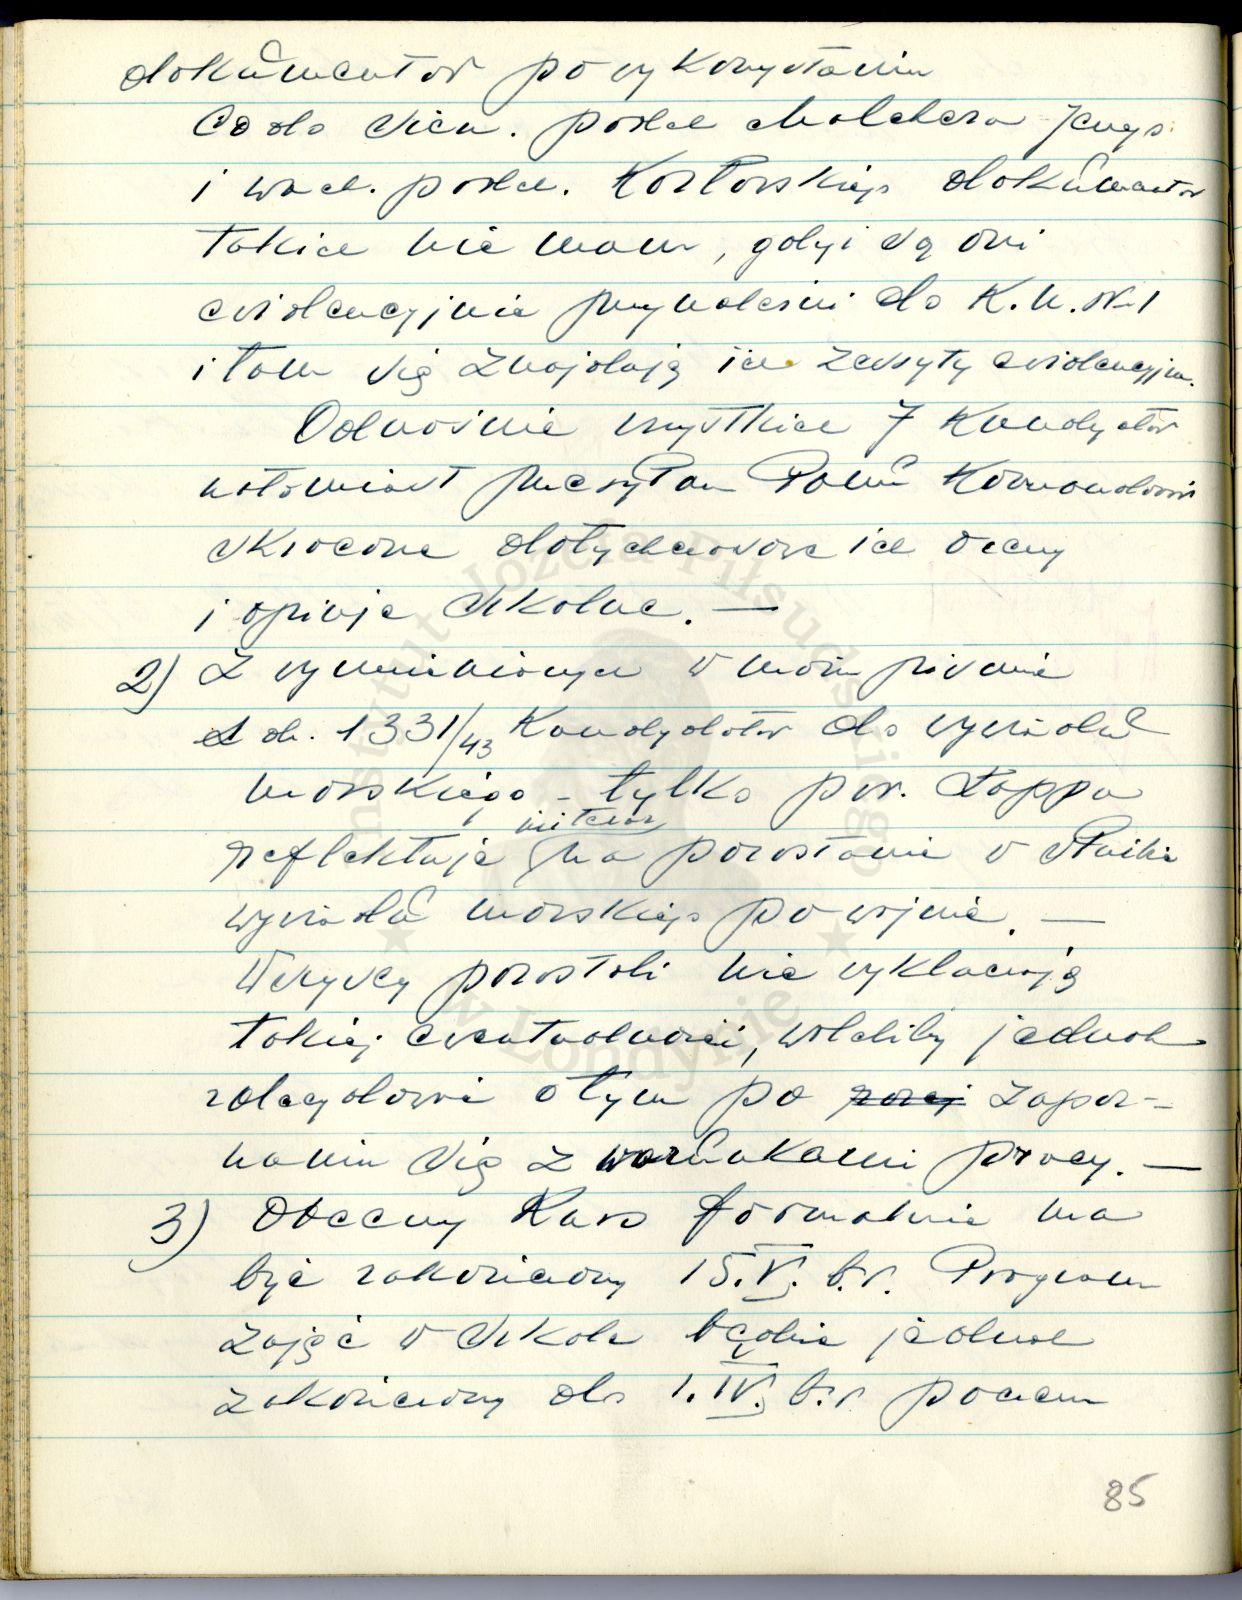 dokumentów po wykorzystaniu
Co do sier. podch. Malchera Jerzego
i wach. podch. Kozłowskiego dokumentów
takich nie mam, gdyż są oni
ewidencyjnie przynależni do K.U. Nr 1
i tam się znajdują ich zeszyty ewidencyjne.
Odnośnie wszystkich 7 kandydatów
natomiast przesyłam Panu Komandorowi
skrócone dotychczasowe ich oceny
i opinje szkolne. —
2) Z wymienionych w moim piśmie
L. dz. 1331/43 kandydatów do wywiadu
morskiego – tylko por. Łappa
nie
reflektuje na pozostanie w służbie
wywiadu morskiego po wojnie. —
Wszyscy pozostali nie wykluczają
takiej ewentualności, woleliby jednak
zdecydować o tym po zapoz-
naniu się z warunkami pracy. —
3) Obecny Kurs formalnie ma
być zakończony 15.V. b.r. Program
zajęć w Szkole będzie jednak
zakończony do 1.IV. b.r poczem
85
Instytut Józefa Piłsudskiego
w Londynie